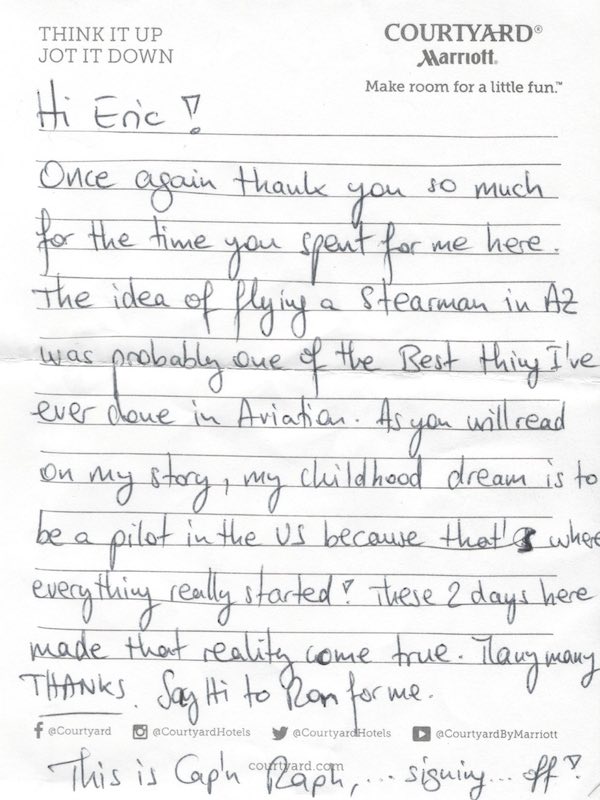 THINK IT UP
JOT IT DOWN
COURTYARD®
Marriott®
Make room for a little fun.™
Hi Eric!
Once again thank you so much
for the time you spent for me here.
The idea of flying a Stearman in AZ
was probably one of the Best thing I've
ever done in Aviation. As you will read
on my story, my childhood dream is to
be a pilot in the US because that's where
everything really started! These 2 days here
made that reality come true. Many many
THANKS. Say Hi to Ron for me.
@Courtyard @CourtyardHotels @CourtyardHotels @CourtyardByMarriott
courtyard.com
This is Cap'n Raph, ... signing... off!